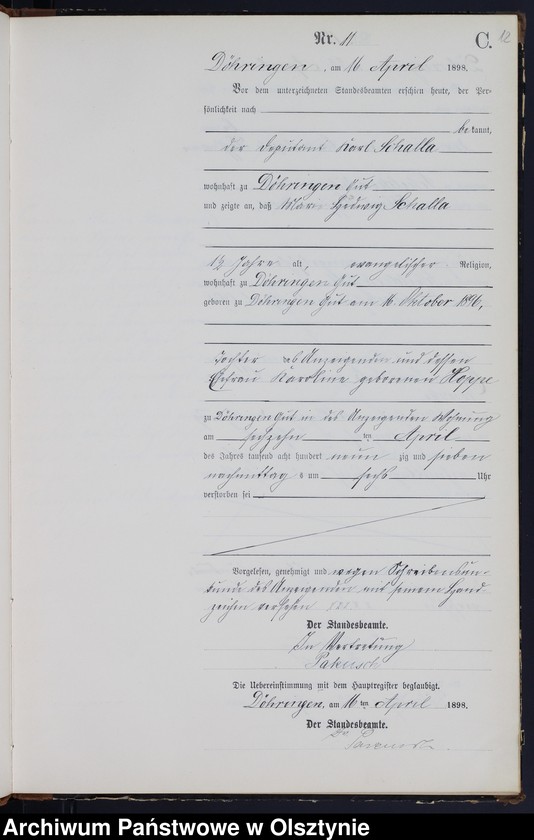 Nr. 11
C.
12
Döhringen, am 16 April 1898.
Vor dem unterzeichneten Standesbeamten erschien heute, der Per-
sönlichkeit nach
bekannt,
der Deputant Karl Schalla
wohnhaft zu Döhringen Gut
und zeigte an, daß Marie Hedwig Schalla
1½ Jahre alt, evangelischer Religion,
wohnhaft zu Döhringen Gut
geboren zu Döhringen Gut am 16. Oktober 1896,
Tochter des Anzeigenden und dessen
Ehefrau Karoline geborenen Hoppe
zu Döhringen Gut in des Anzeigenden Wohnung
am sechzehn ten April
des Jahres tausend acht hundert neun zig und
nachmittag s um sechs Uhr
verstorben sei
Vorgelesen, genehmigt und wegen Schreibensun-
kunde des Anzeigenden mit seinem Hand-
zeichen versehen
Der Standesbeamte.
In Vertretung
Die Uebereinstimmung mit dem Hauptregister beglaubigt.
Döhringen, am 16 ten April 1898.
Der Standesbeamte.
Archiwum Państwowe w Olsztynie